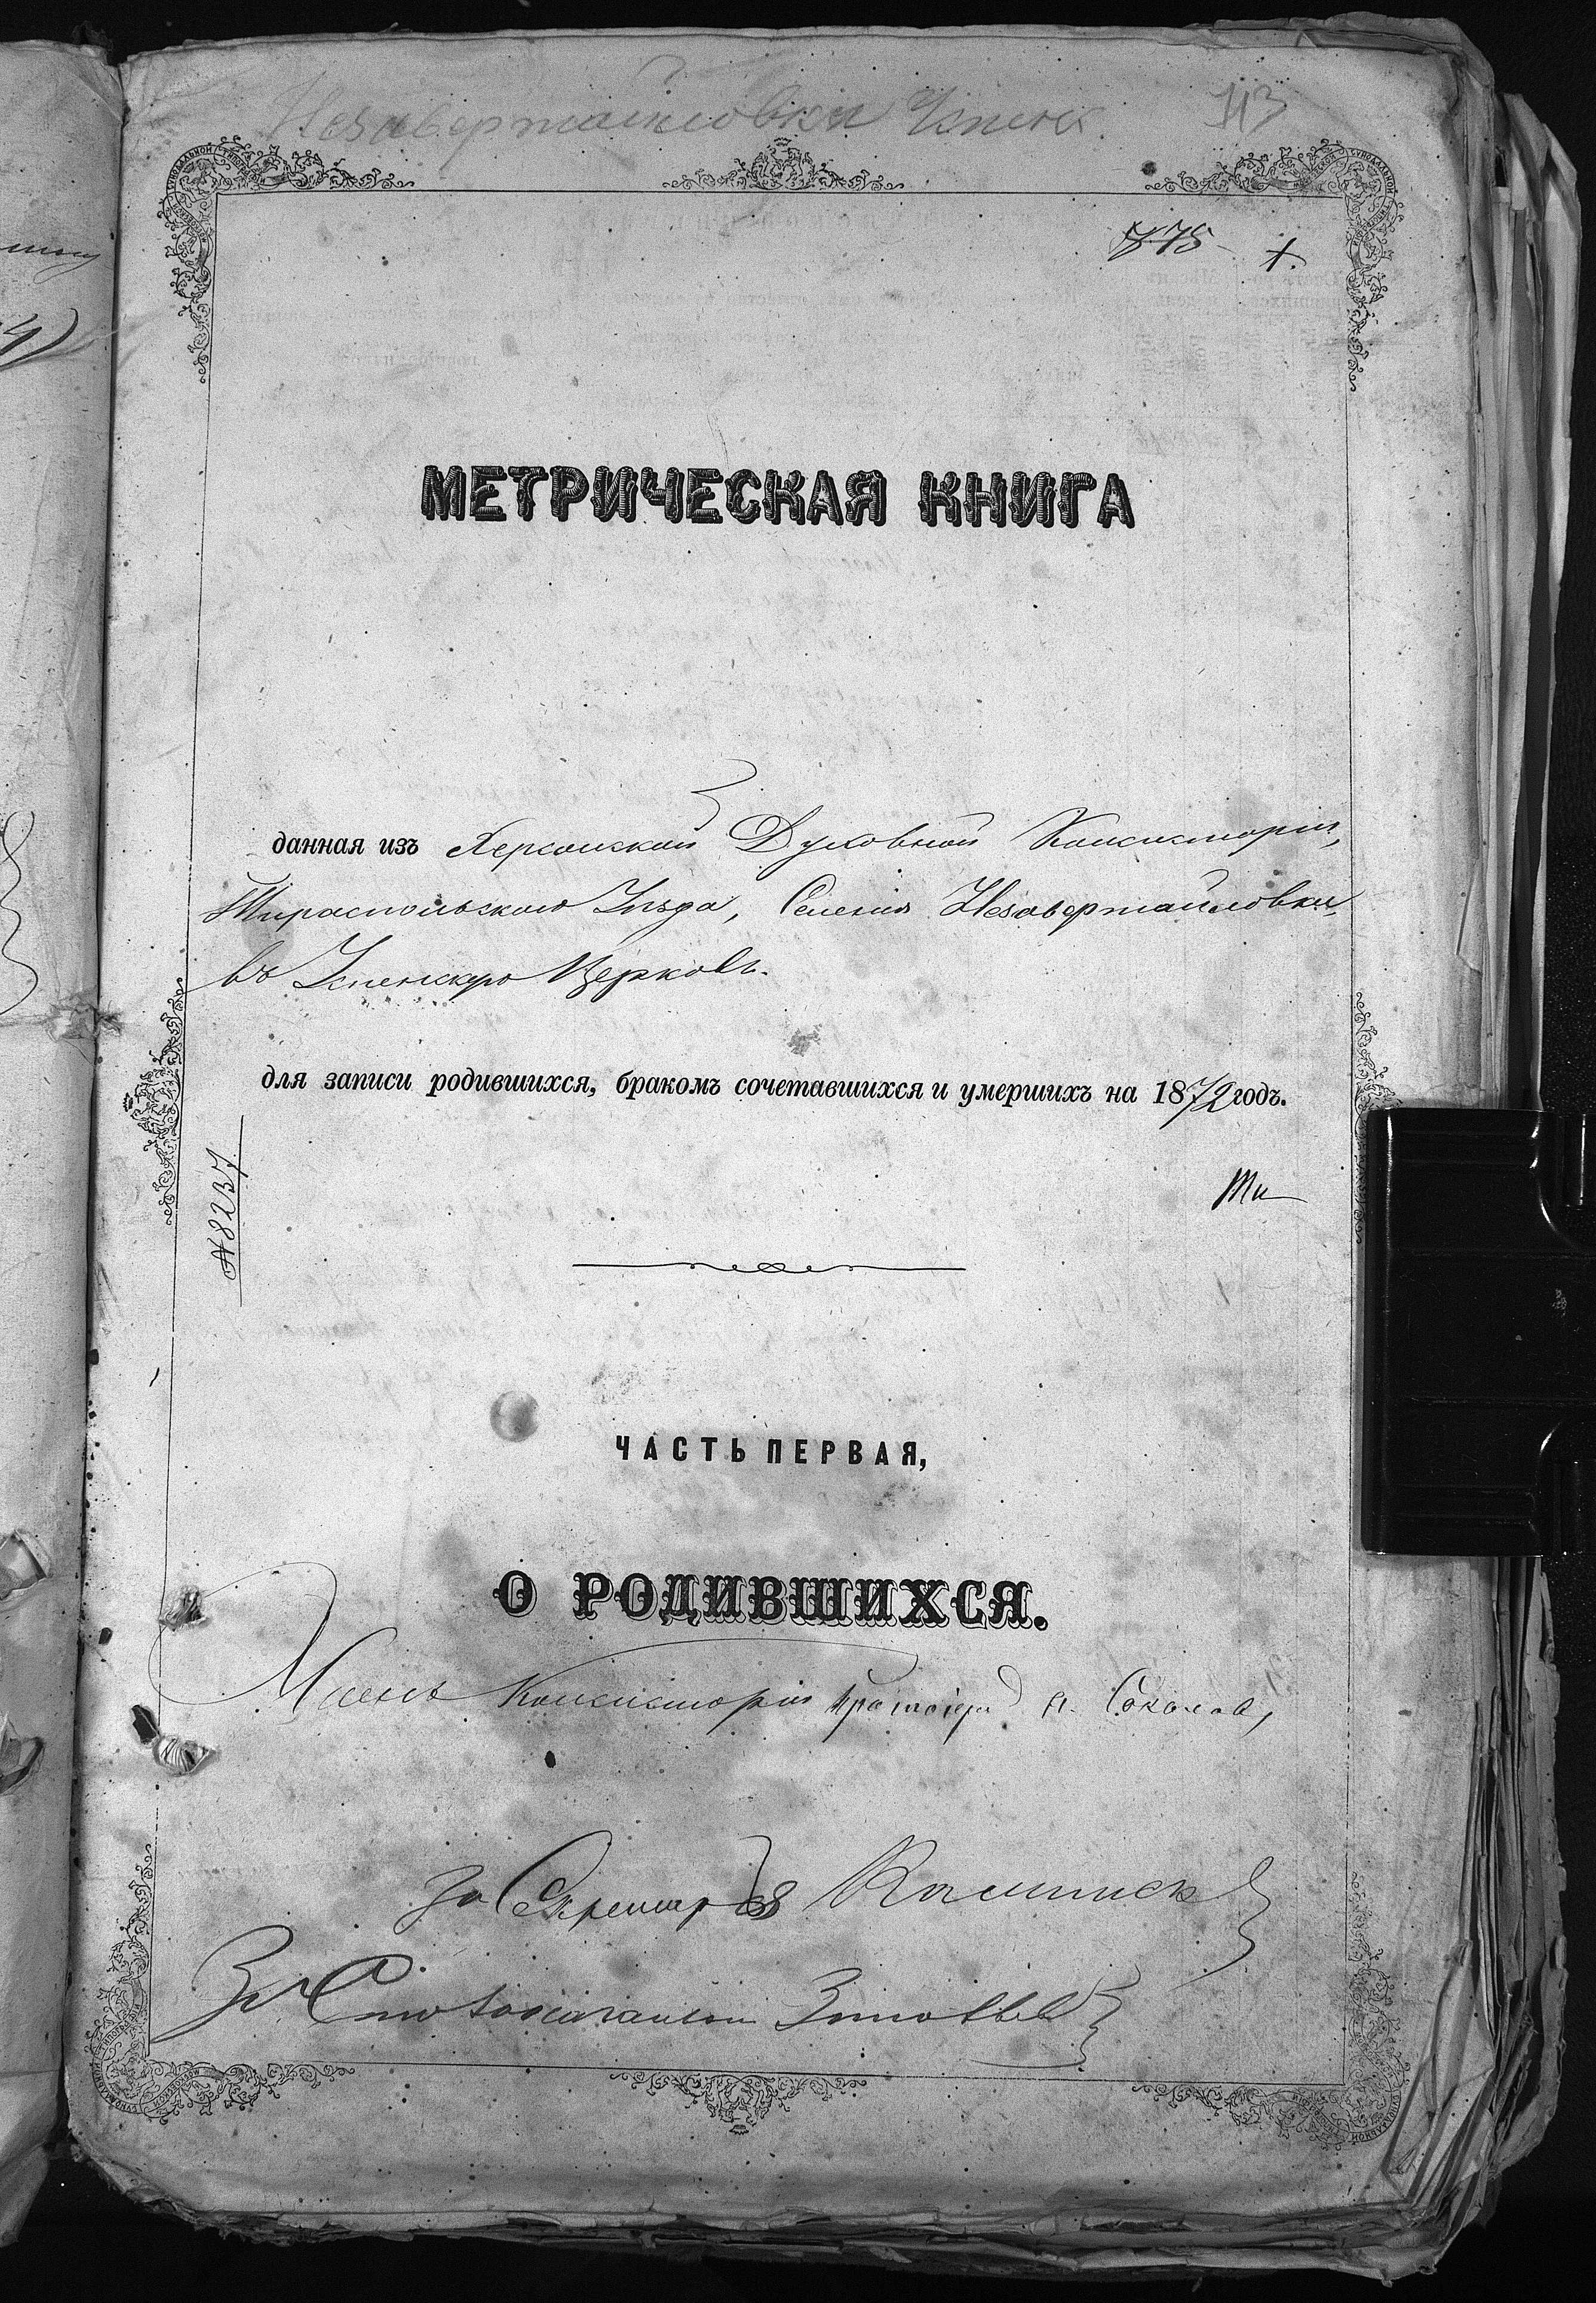 Незавертайловки Успен.
113
875 1.
МЕТРИЧЕСКАЯ КНИГА
данная изъ Херсонской Духовной Консисторіи,
Тираспольскаго Уѣзда, Селенія Незавертайловки,
въ Успенскую Церковь.
для записи родившихся, бракомъ сочетавшихся и умершихъ на 1872 годъ.
№ 8237.
ЧАСТЬ ПЕРВАЯ,
О РОДИВШИХСЯ.
Членъ Консисторіи Протоіерей А. Соколовъ,
За Секретаря
За Столоначальника Зиновьевъ